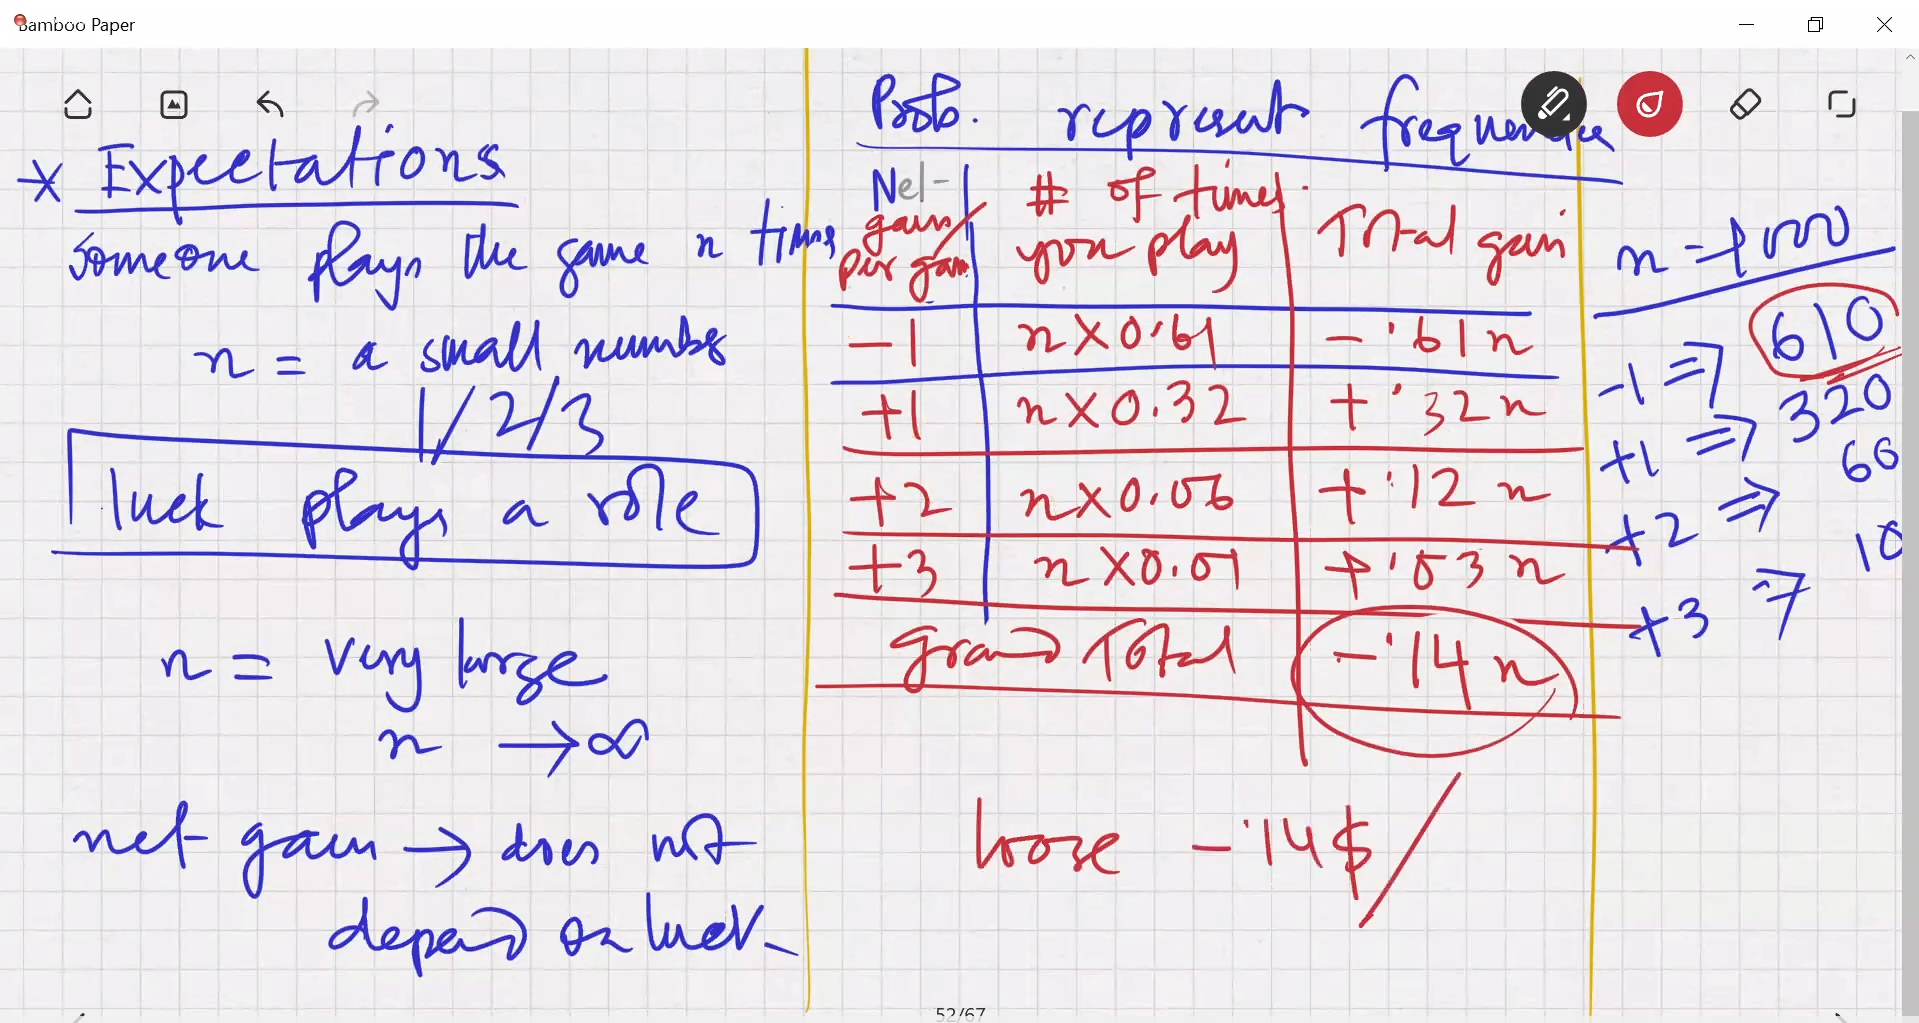 Bamboo Paper
* Expectations
Someone plays the game n times
n = a small number
1/2/3
luck plays a role
n = very large
n → ∞
net gain → does not
depend on luck
Prob. represent frequencies
Net gain per game | # of times you play | Total gain
-1 | n X 0.61 | - .61 n
+1 | n X 0.32 | + .32 n
+2 | n X 0.06 | + .12 n
+3 | n X 0.01 | + .03 n
Grand Total | - .14 n
loose - .14 $/
n = 1000
-1 ⇒ 610
+1 ⇒ 320
+2 ⇒ 60
+3 ⇒ 10
52/67